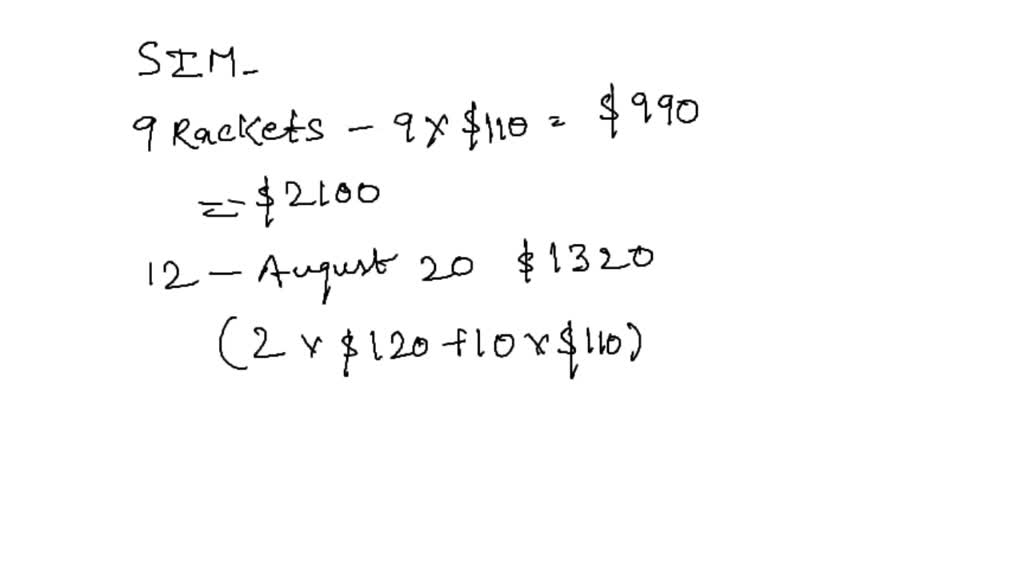 SIM-
9 Rackets - 9 x $110 = $990
= $2100
12 - August 20 $1320
(2 x $120 + 10 x $110)